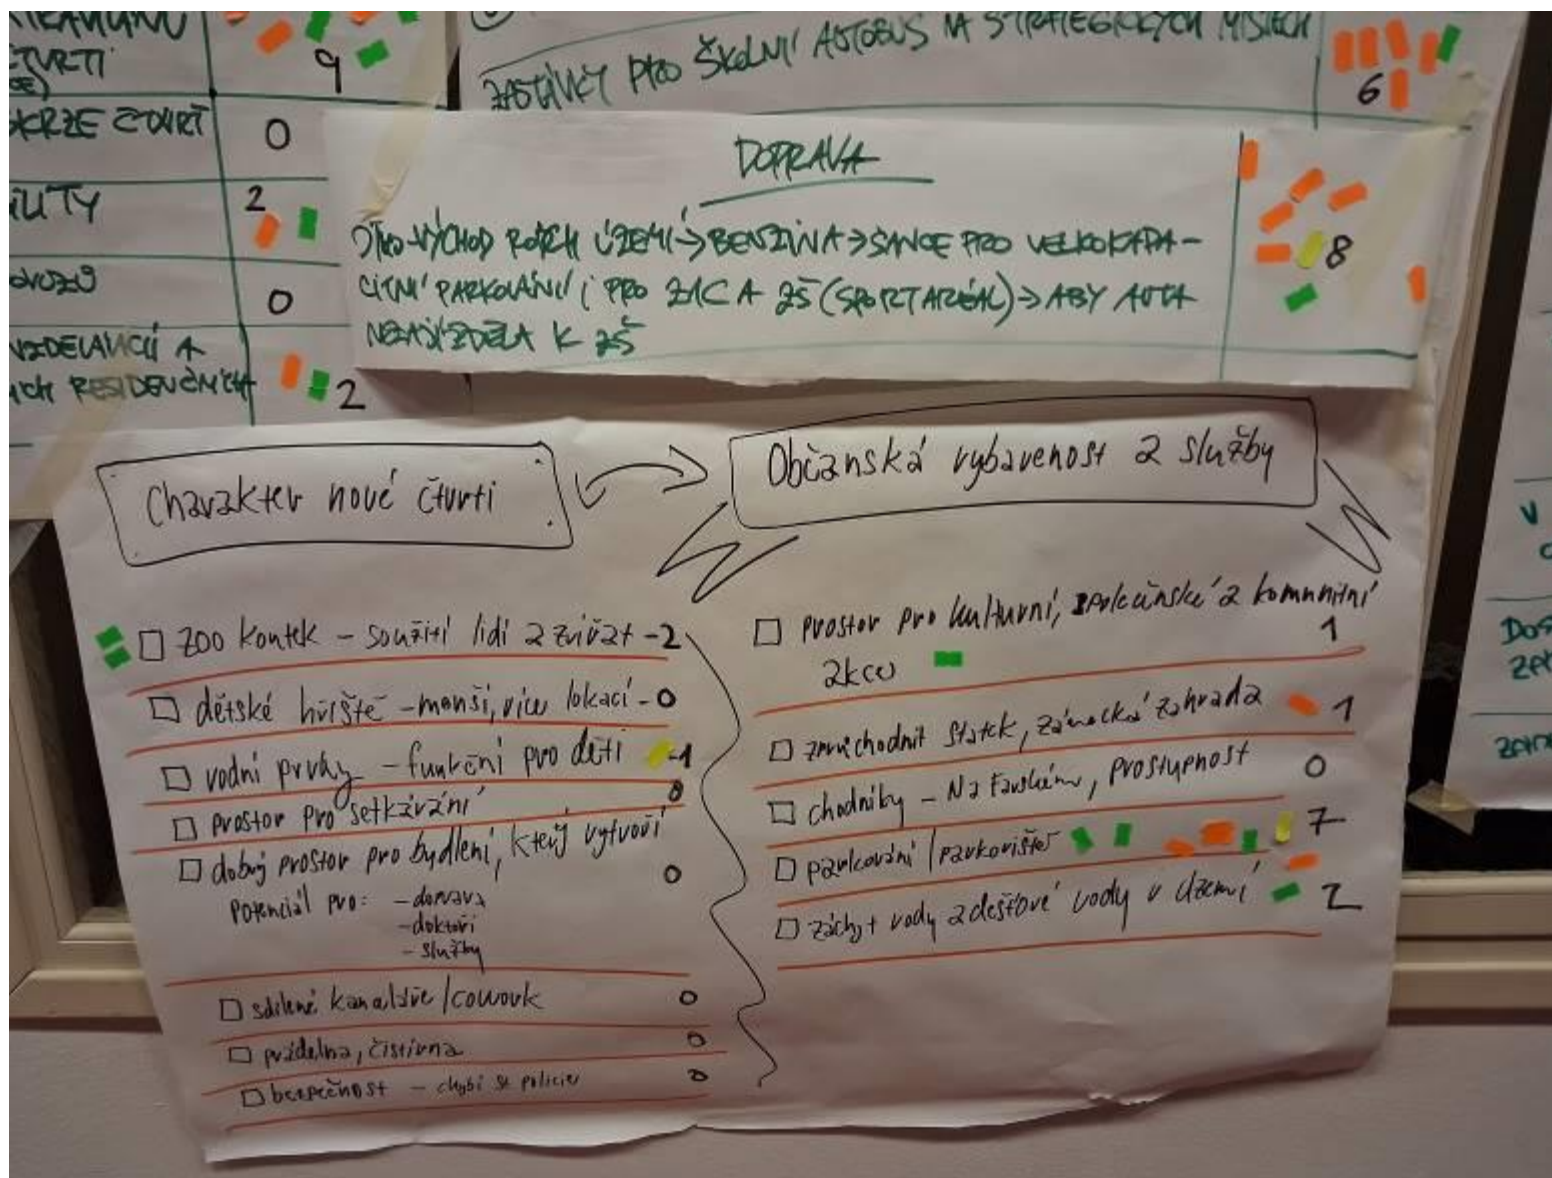 9
0
2
0
2
ZASTÁVKY PRO ŠKOLNÍ AUTOBUS NA STRATEGICKÝCH MÍSTECH
6
DOPRAVA
ÚZEMÍ → BENZINA → ŠANCE PRO VELKOKAPA-
CITNÍ PARKOVÁNÍ I PRO ZAC A ZŠ (SPORTAREÁL) → ABY AUTA
NEZAJÍŽDĚLA K ZŠ
8
Charakter nové čtvrti
☐ ZOO koutek – soužití lidí a zvířat – 2
☐ dětské hřiště – menší, více lokací – 0
☐ vodní prvky – funkční pro děti – 1
☐ prostor pro setkávání 0
☐ dobrý prostor pro bydlení, který vytvoří
potenciál pro: – doprava 0
– doktoři
– služby
☐ sdílené kanceláře / cowork 0
☐ prádelna, čistírna 0
☐ bezpečnost – chybí st. policie 0
Občanská vybavenost a služby
☐ prostor pro kulturní, společenské a komunitní
akce 1
☐ zprůchodnit statek, zámecká zahrada 1
☐ chodníky – Na Farském, prostupnost 0
☐ parkování / parkoviště 7
☐ záchyt vody a dešťové vody v území 2